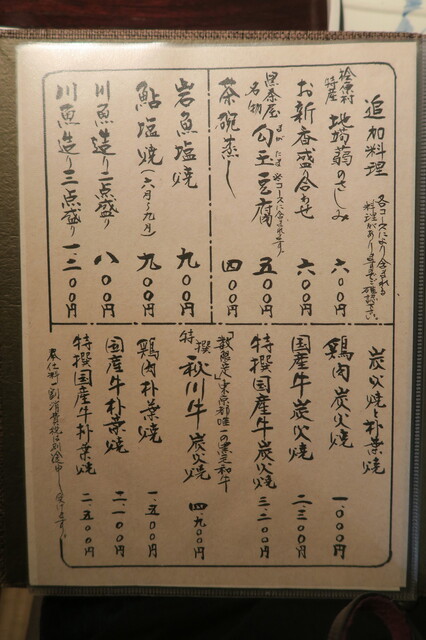 追加料理
各コースにより含まれる
料理があります
ご確認下さい。
檜原村
特産
地蒟蒻のさしみ 六〇〇円
お新香盛り合わせ 六〇〇円
黒茶屋
名物
勾玉豆腐 五〇〇円
まがたま
※コースに含まれます。
茶碗蒸し 四〇〇円
岩魚塩焼 九〇〇円
鮎塩焼(六月〜九月) 九〇〇円
川魚造り二点盛り 八〇〇円
川魚造り三点盛り 一、二〇〇円
炭火焼と朴葉焼
鶏肉炭火焼 一、〇〇〇円
国産牛炭火焼 二、三〇〇円
特撰国産牛炭火焼 三、二〇〇円
東京都唯一の黒毛和牛
特撰 秋川牛炭火焼 四、九〇〇円
鶏肉朴葉焼 一、五〇〇円
国産牛朴葉焼 二、一〇〇円
特撰国産牛朴葉焼 二、五〇〇円
奉仕料一割消費税は別途申し受けます。